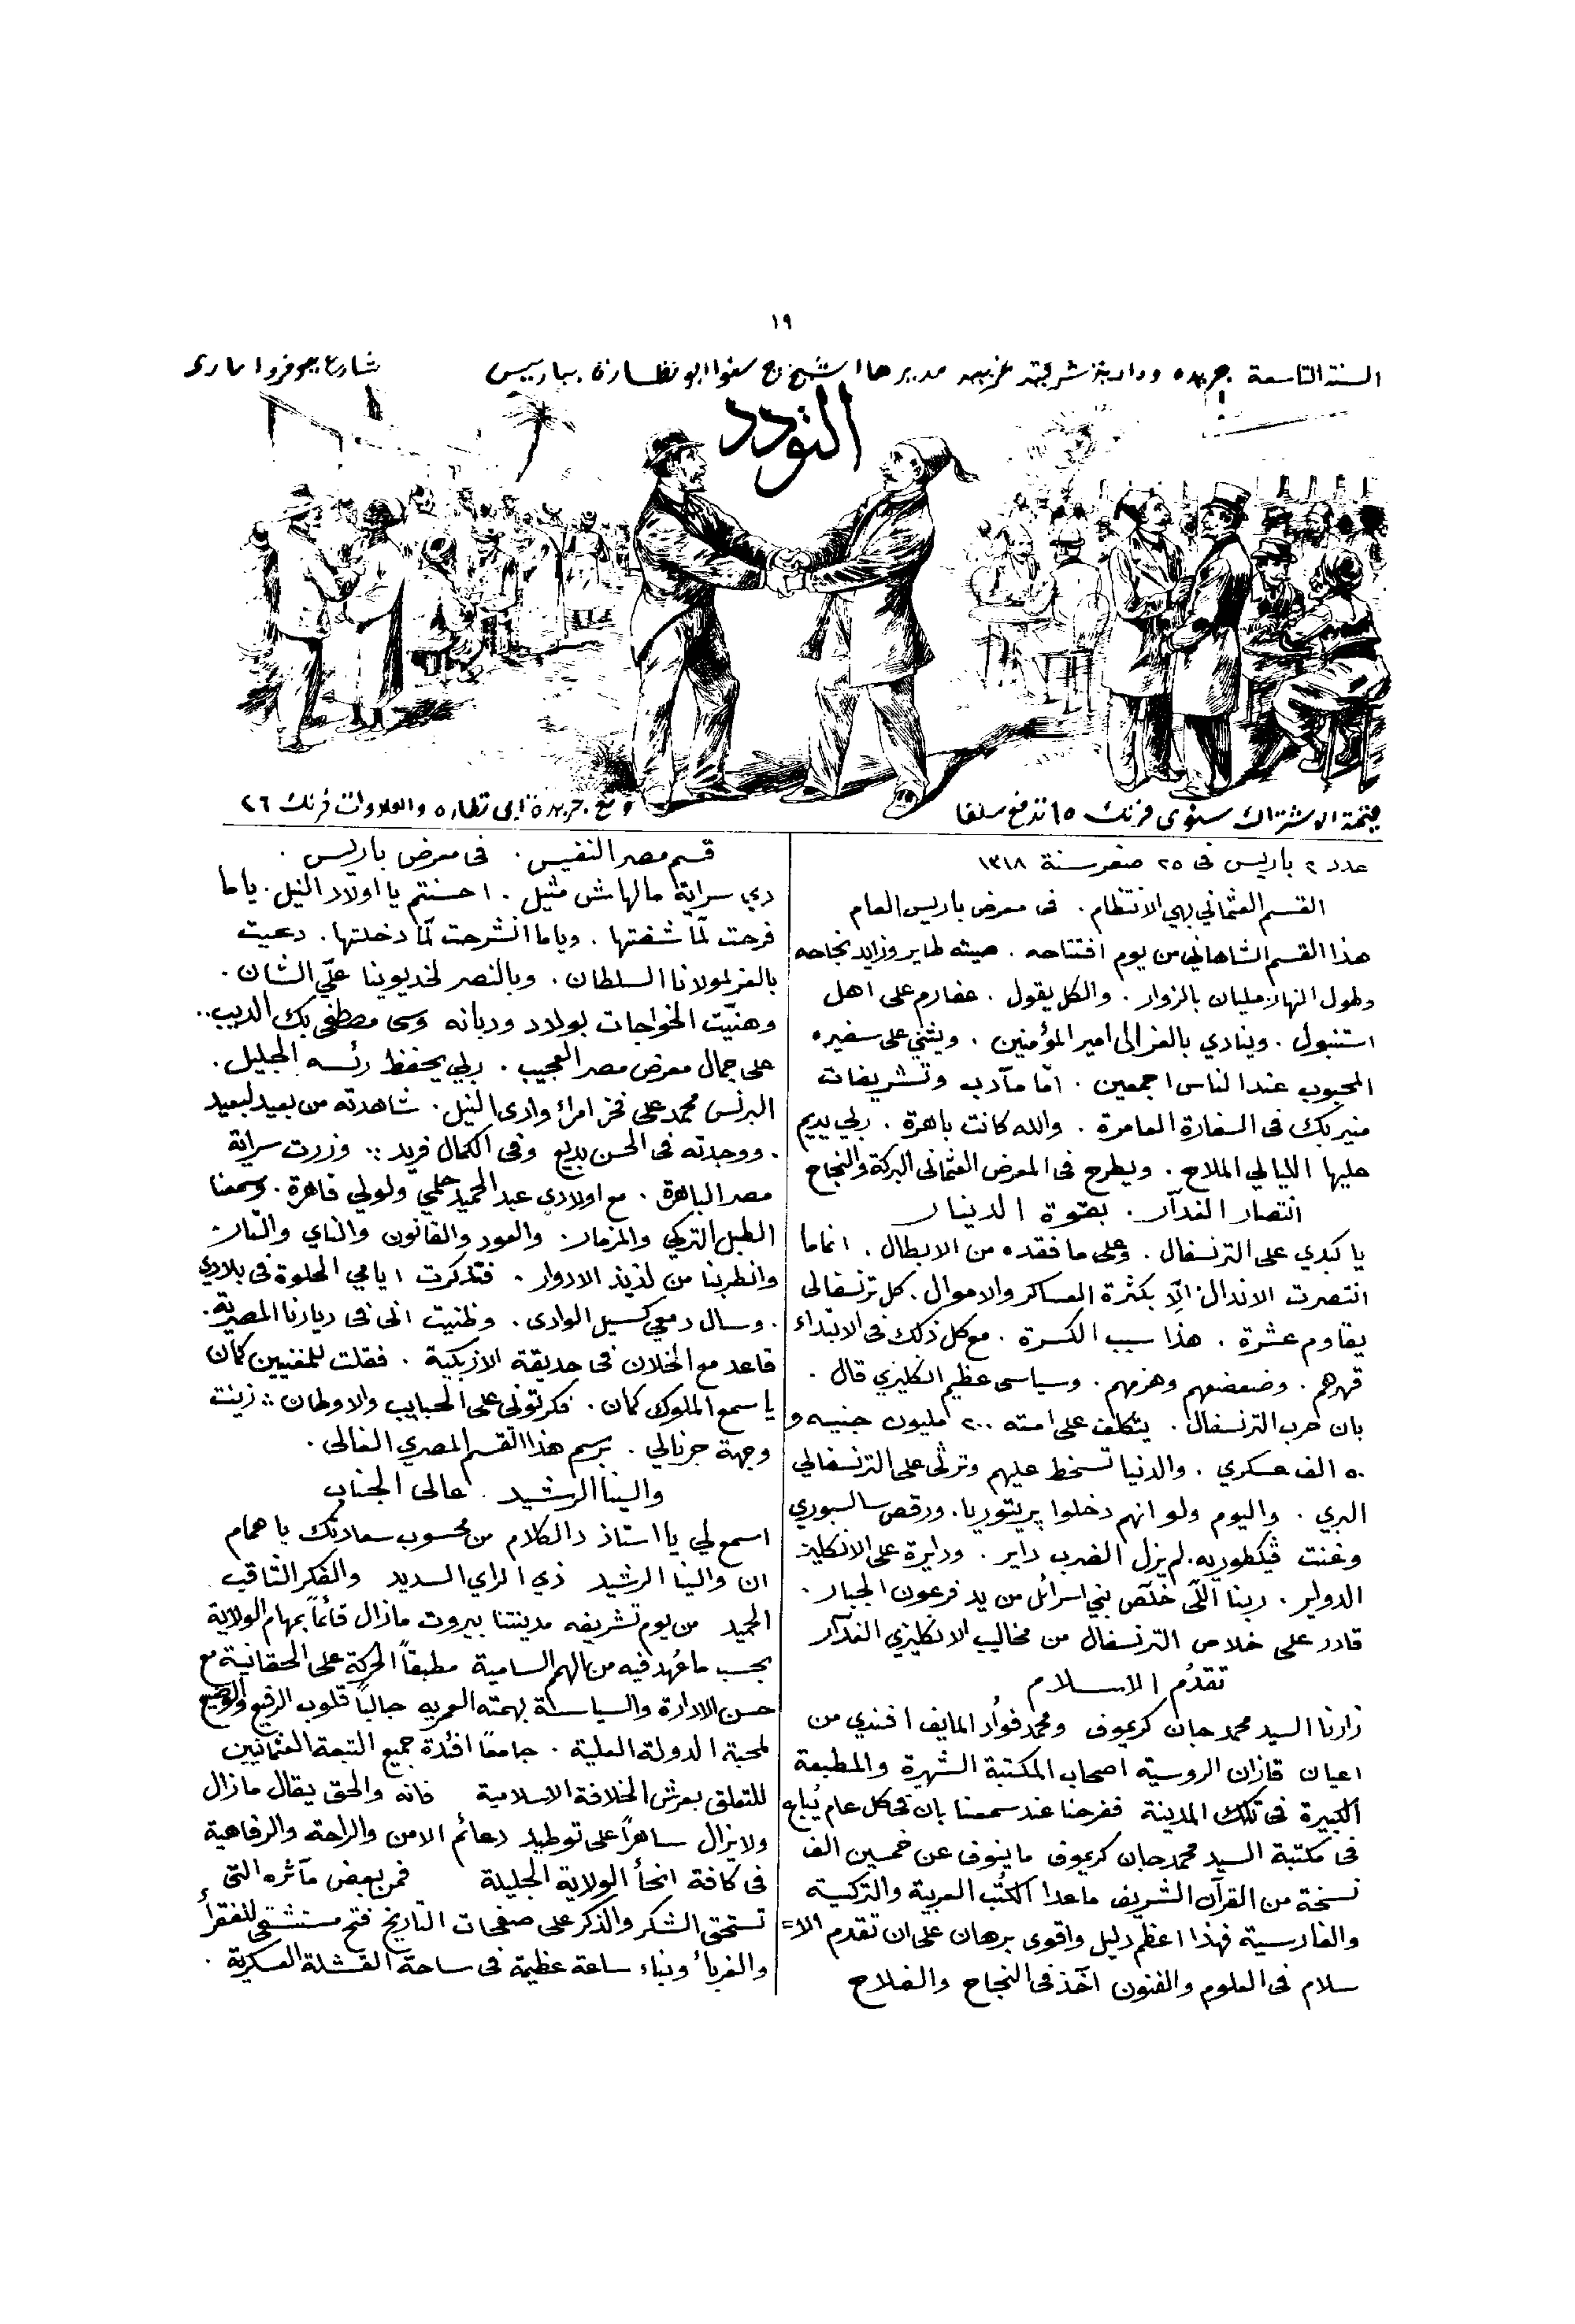 ١٩
السنة التاسعة جريده ودادية شرقيه غربيه مديرها الشيخ ج سنوا ابو نظارة بباريس شارع جوفروا ماري
التودد
قيمة الاشتراك سنوى فرنك ١٥ تدفع سلفا
ومع جريدة ابى نظاره والعلاوات فرنك ٢٦
عدد ٢ باريس فى ٢٥ صفر سنة ١٣١٨
القسم العثماني بهي الانتظام . فى معرض باريس العام
هذا القسم الشاهاني من يوم افتتاحه . صيته طاير وزايد نجاحه
وطول النهار مليان بالزوار . والكل يقول . عفارم على اهل
استنبول . وينادي بالعز الى امير المؤمنين . ويثني على سفيره
المحبوب عند الناس اجمعين . امّا مآدب وتشريفات
منير بك فى السفارة العامرة . والله كانت باهرة . ربي يديم
عليها الليالي الملاح . ويطرح فى المعرض العثمانى البركة والنجاح
انتصار الغدّار . بقوة الدينار
يا كبدي على الترنسفال . وعلى ما فقده من الابطال . انما ما
انتصرت الاندال الّا بكثرة العساكر والاموال . كل ترنسفالى
يقاوم عشرة . هذا سبب الكسرة . مع كل ذلك فى الابتداء
قهرهم . وضعضعهم وهزمهم . وسياسى عظيم انكليزي قال .
بان حرب الترنسفال . يتكلف على امته ٢٠٠ مليون جنيه و
٥٠ الف عسكري . والدنيا تسخط عليهم وترثى على الترنسفالي
البري . واليوم ولو انهم دخلوا پريتوريا . ورقص سالسبوري
وغنت ڤيكطوريه . لم يزل الضرب داير . ودايرة على الانكليز
الدواير . ربنا اللّى خلّص بني اسرائل من يد فرعون الجبار .
قادر على خلاص الترنسفال من مخاليب الانكليزي الغدّار
تقدّم الاسلام
زارنا السيد محمد جان كريموف ومحمد فؤاد المايف افندي من
اعيان قازان الروسية اصحاب المكتبة الشهيرة والمطبعة
الكبيرة فى تلك المدينة ففرحنا عند سمعنا بان فى كل عام يُباع
فى مكتبة السيد محمد جان كريموف ما ينوف عن خمسين الف
نسخة من القرآن الشريف ما عدا الكتب العربية والتركية
والفارسية فهذا اعظم دليل واقوى برهان على ان تقدم الا=
سلام فى العلوم والفنون آخذ فى النجاح والفلاح
قسم مصر النفيس . فى معرض باريس .
دي سراية مالهاش مثيل . احسنتم يا اولاد النيل . ياما
فرحت لمّا شفتها . وياما انشرحت لمّا دخلتها . دعيت
بالعز لمولانا السلطان . وبالنصر لخديوينا علّي الشان .
وهنّيت الخواجات بولاد وديانه وسى مصطفى بك الديب ..
على جمال معرض مصر العجيب . ربي يحفظ رئسه الجليل .
البرنس محمد على فخر امراء وادى النيل . شاهدته من بعيد لبعيد
. ووجدته فى الحسن بديع وفى الكمال فريد :: وزرت سراية
مصر الباهرة . مع اولادي عبد الحميد حلمي ولولي قاهرة . وسمعنا
الطبل التركي والمزمار . والعود والقانون والناي والتار .
وانطربنا من لذيذ الادوار . فتذكرت ايامي الحلوة فى بلادي
. وسال دمعي كسيل الوادى . وظنيت انى فى ديارنا المصرية .
قاعد مع الخلان فى حديقة الازبكية . فقلت للمغنيين كمان
يا سمع الملوك كمان . فكرتونى على الحبايب والاوطان :: زينت
وجهة جرنالي . برسم هذا القسم المصري الغالى .
والينا الرشيد . عالى الجناب
اسمع لي يا استاذ دالكلام من محسوب سعادتك يا همام
ان والينا الرشيد ذي الراي السديد والفكر الثاقب
الحميد من يوم تشريفه مدينتنا بيروت مازال قائماً بمهام الولاية
بحسب ما عُهد فيه من الهمم السامية مطبقاً الحركة على الحقانية مع
حسن الادارة والسياسة بهمته العمريه جالباً قلوب الرفيع والوضيع
لمحبة الدولة العلية . جامعاً افئدة جميع التبعة العثمانيين
للتعلق بعرش الخلافة الاسلامية فانه والحق يقال مازال
ولا يزال ساهراً على توطيد دعائم الامن والراحة والرفاهية
فى كافة انحأ الولاية الجليلة فمن بعض مآثره التى
تستحق الشكر والذكر على صفحات التاريخ فتح مستشفى للفقرأ
والغربأ وبناء ساعة عظيمة فى ساحة القشلة العسكرية .